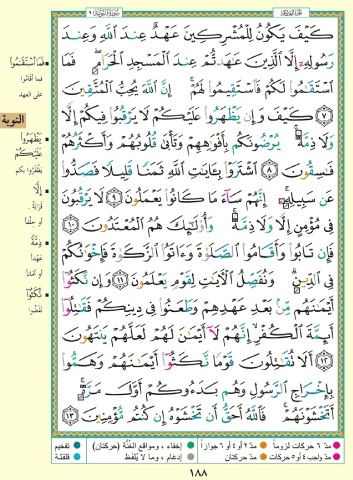 سورة التوبة ٩
الجزء العاشر
كَيْفَ يَكُونُ لِلْمُشْرِكِينَ عَهْدٌ عِندَ اللَّهِ وَعِندَ
رَسُولِهِ إِلَّا الَّذِينَ عَاهَدتُّمْ عِندَ الْمَسْجِدِ الْحَرَامِ فَمَا
اسْتَقَامُوا لَكُمْ فَاسْتَقِيمُوا لَهُمْ إِنَّ اللَّهَ يُحِبُّ الْمُتَّقِينَ
٧ كَيْفَ وَإِن يَظْهَرُوا عَلَيْكُمْ لَا يَرْقُبُوا فِيكُمْ إِلًّا
وَلَا ذِمَّةً يُرْضُونَكُم بِأَفْوَاهِهِمْ وَتَأْبَى قُلُوبُهُمْ وَأَكْثَرُهُمْ
فَاسِقُونَ ٨ اشْتَرَوْا بِآيَاتِ اللَّهِ ثَمَنًا قَلِيلًا فَصَدُّوا
عَن سَبِيلِهِ إِنَّهُمْ سَاءَ مَا كَانُوا يَعْمَلُونَ ٩ لَا يَرْقُبُونَ
فِي مُؤْمِنٍ إِلًّا وَلَا ذِمَّةً وَأُولَئِكَ هُمُ الْمُعْتَدُونَ ١٠
فَإِن تَابُوا وَأَقَامُوا الصَّلَاةَ وَآتَوُا الزَّكَاةَ فَإِخْوَانُكُمْ
فِي الدِّينِ وَنُفَصِّلُ الْآيَاتِ لِقَوْمٍ يَعْلَمُونَ ١١ وَإِن نَّكَثُوا
أَيْمَانَهُم مِّن بَعْدِ عَهْدِهِمْ وَطَعَنُوا فِي دِينِكُمْ فَقَاتِلُوا
أَئِمَّةَ الْكُفْرِ إِنَّهُمْ لَا أَيْمَانَ لَهُمْ لَعَلَّهُمْ يَنتَهُونَ
١٢ أَلَا تُقَاتِلُونَ قَوْمًا نَّكَثُوا أَيْمَانَهُمْ وَهَمُّوا
بِإِخْرَاجِ الرَّسُولِ وَهُم بَدَءُوكُمْ أَوَّلَ مَرَّةٍ
أَتَخْشَوْنَهُمْ فَاللَّهُ أَحَقُّ أَن تَخْشَوْهُ إِن كُنتُم مُّؤْمِنِينَ ١٣
فَمَا اسْتَقَامُوا
فما أقاموا
على العهد
التوبة
يَظْهَرُوا
عَلَيْكُمْ
يظفروا بكم
إِلًّا
قرابة،
أو حلفاً
ذِمَّةً
عهداً
أو أماناً
نَكَثُوا
نقضوا
مدّ ٦ حركات لزوماً
مدّ ٢ أو ٤ أو ٦ جوازاً
إخفاء، ومواقع الغنّة (حركتان)
تفخيم
مدّ واجب ٤ أو ٥ حركات
مدّ حركتان
إدغام، وما لا يُلفظ
قلقلة
١٨٨